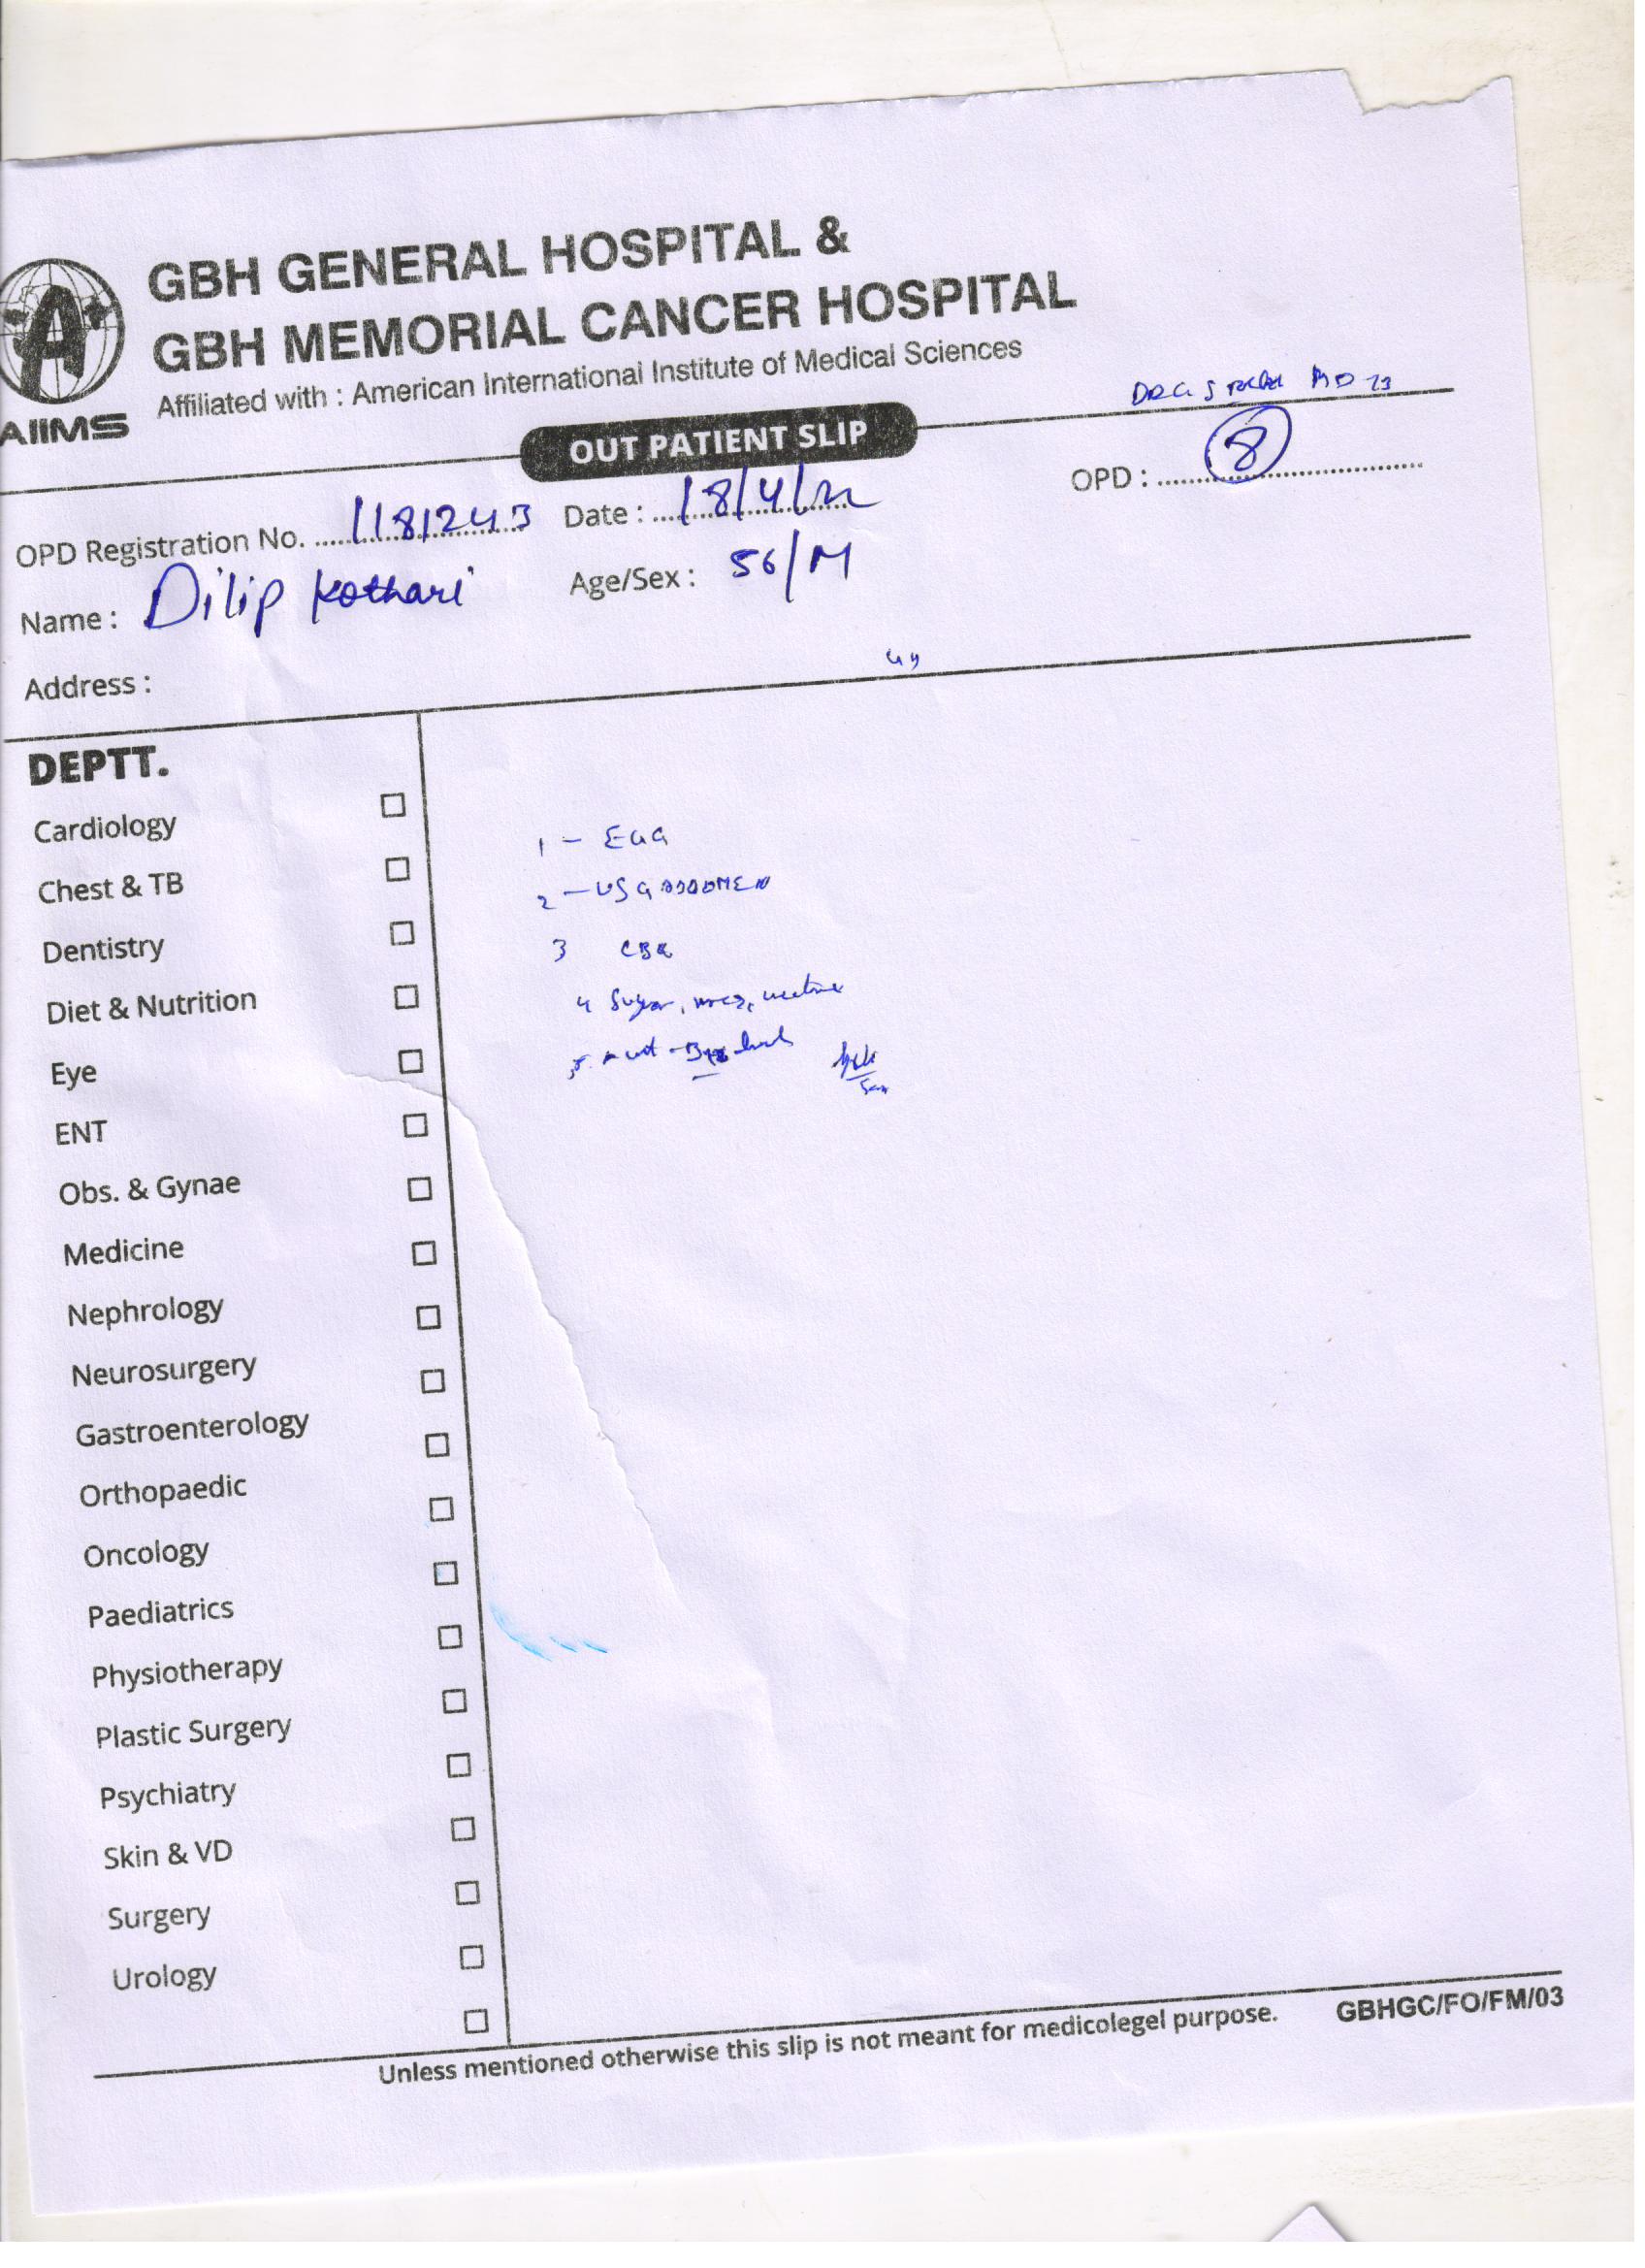 GBH GENERAL HOSPITAL &
GBH MEMORIAL CANCER HOSPITAL
Affiliated with : American International Institute of Medical Sciences
AIIMS
OUT PATIENT SLIP
OPD Registration No. 1181243 Date : 18/4/22 OPD : 8
Name : Dilip Kothari Age/Sex : 56/M
Address :
DEPTT.
Cardiology
Chest & TB
Dentistry
Diet & Nutrition
Eye
ENT
Obs. & Gynae
Medicine
Nephrology
Neurosurgery
Gastroenterology
Orthopaedic
Oncology
Paediatrics
Physiotherapy
Plastic Surgery
Psychiatry
Skin & VD
Surgery
Urology
1 - ECG
2 - USG ABDOMEN
3 CBC
4 Sugar,
5.
Unless mentioned otherwise this slip is not meant for medicolegel purpose. GBHGC/FO/FM/03